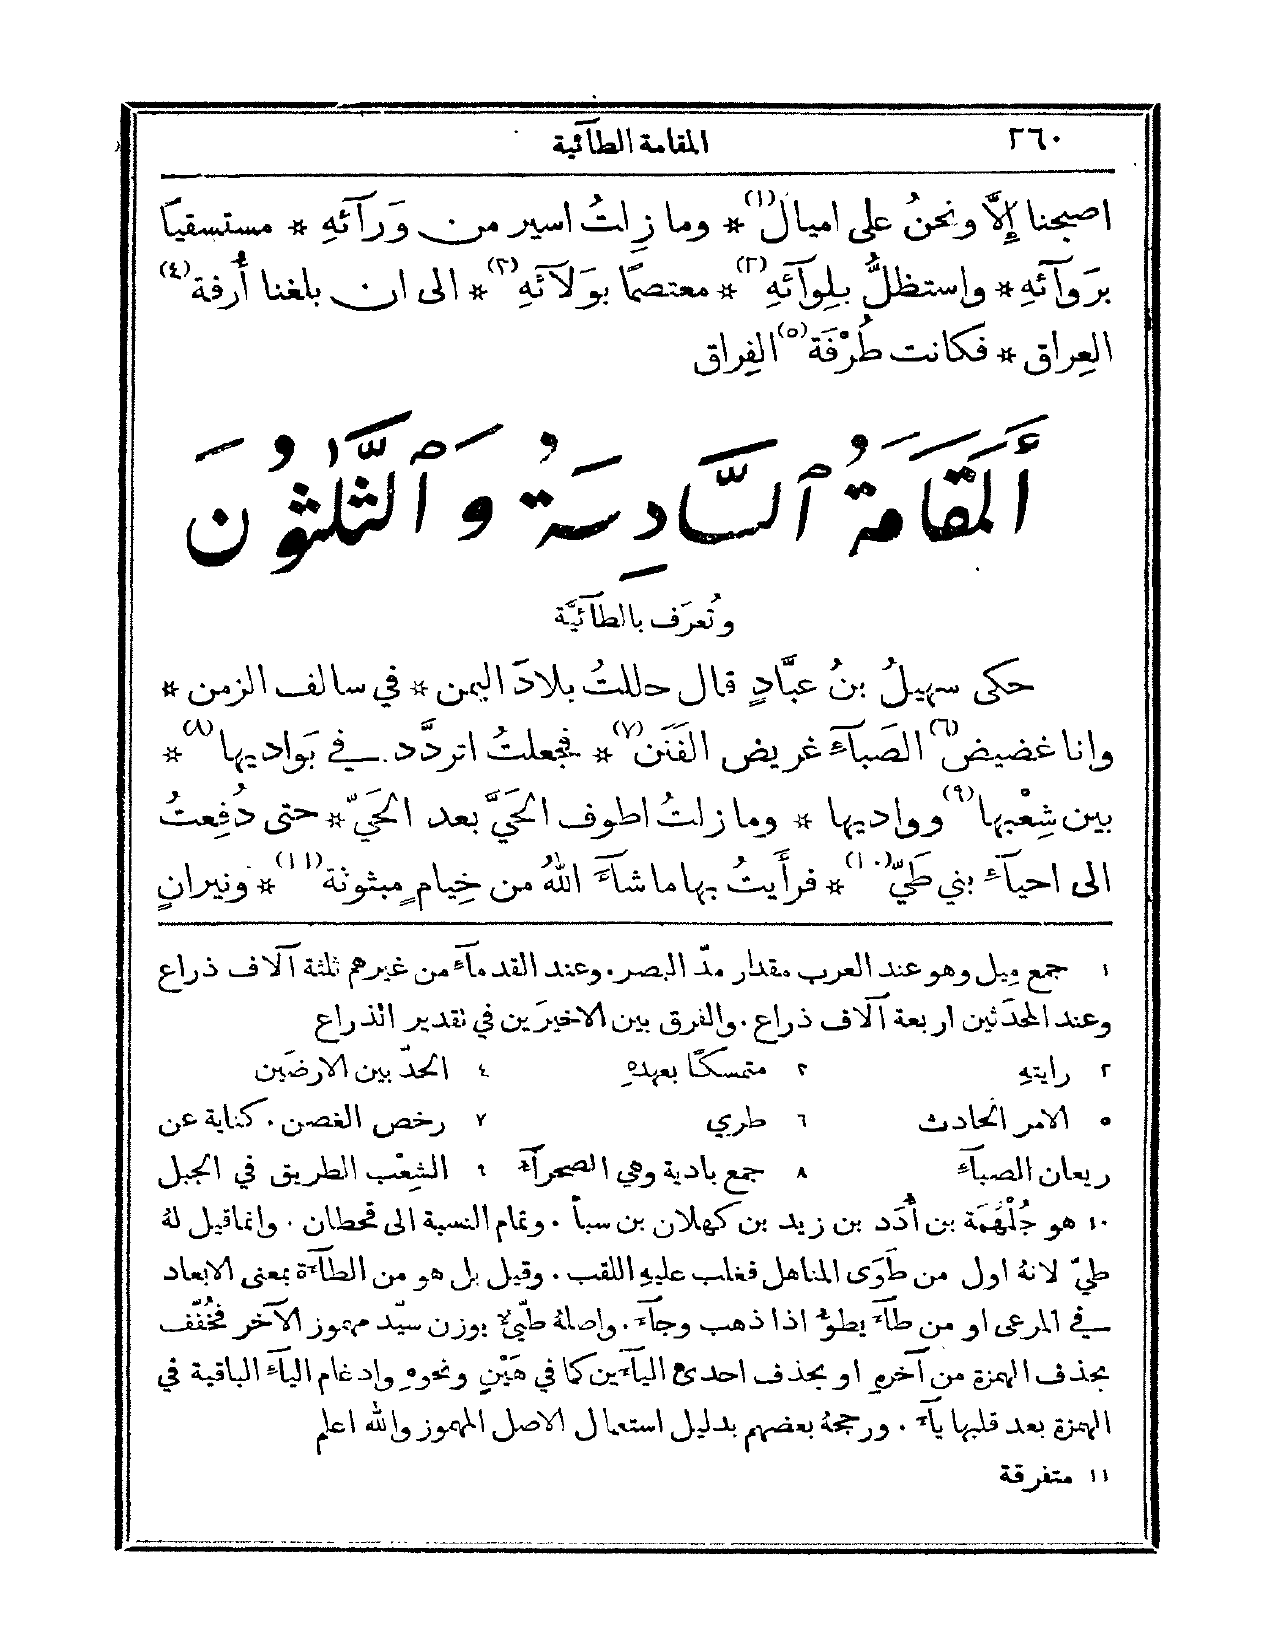 ٢٦٠ المقامة الطآئية
اصبحنا إلَّا ونحنُ على اميال(١) * وما زِلتُ اسير من وَرآئهِ * مستسقيًا
برَوآئهِ * واستظلُّ بلِوآئهِ(٢) * معتصمًا بوَلآئهِ(٣) * الى ان بلغنا أُرفة(٤)
العِراق * فكانت طُرْفَة(٥) الفِراق
أَلمَقَامَةُ ٱلسَّادِسَةُ وَٱلثَّلٰثُونَ
وتُعرَف بالطآئيَّة
حكى سهيلُ بنُ عبَّادٍ قال حللتُ بلادَ اليمن * في سالف الزمن *
وانا غضيض(٦) الصَبآء غريض الفَنَن(٧) * فجعلتُ اتردَّد في بَواديها(٨) *
بين شِعْبها(٩) وواديها * وما زلتُ اطوف الحَيَّ بعد الحَيّ * حتى دُفِعتُ
الى احيآء بني طَيّ(١٠) * فرأَيتُ بها ما شآءَ اللهُ من خِيامٍ مبثوثة(١١) * ونيرانٍ
١ جمع مِيل وهو عند العرب مقدار مدّ البصر. وعند القدمآء من غيرهم ثلثة آلاف ذراع
وعند المحدَثين اربعة آلاف ذراع. والفرق بين الاخيرَين في تقدير الذراع
٢ رايتهِ ٣ متمسكًا بعهدهِ ٤ الحدّ بين الارضَين
٥ الامر الحادث ٦ طري ٧ رخص الغصن. كناية عن
ريعان الصبآء ٨ جمع بادية وهي الصحرآء ٩ الشِعْب الطريق في الجبل
١٠ هو جُلْهُمَة بن أُدَد بن زيد بن كهلان بن سبأ. وتمام النسبة الى قحطان. وانما قيل لهُ
طيّ لانهُ اول من طَوَى المناهل فغلب عليهِ اللقب. وقيل بل هو من الطآءة بمعنى الابعاد
في المرعى او من طآء يطوءُ اذا ذهب وجآء. واصلهُ طيّئ بوزن سيّد مهموز الآخر فخُفّف
بحذف الهمزة من آخرهِ او بحذف احدى اليآءين كما في هَيْنٍ ونحوهِ وادغام اليآء الباقية في
الهمزة بعد قلبها يآء. ورجحهُ بعضهم بدليل استعمال الاصل المهموز والله اعلم
١١ متفرقة